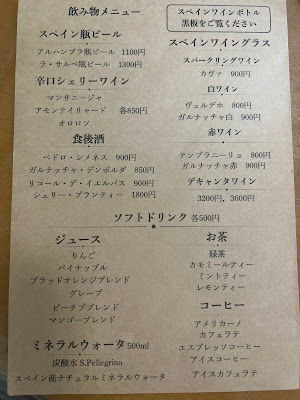 飲み物メニュー
スペイン瓶ビール
アルハンブラ瓶ビール 1100円
ラ・サルベ瓶ビール 1300円
辛口シェリーワイン
マンサニージャ
アモンテイリャード 各850円
オロロソ
食後酒
ペドロ・シメネス 900円
ガルナッチャ・デンボルダ 850円
リコール・デ・イエルバス 900円
シェリー・ブランティー 1800円
スペインワインボトル
黒板をご覧ください
スペインワイングラス
スパークリングワイン
カヴァ 900円
白ワイン
ヴェルデホ 800円
ガルナッチャ白 900円
赤ワイン
テンプラニーリョ 800円
ガルナッチャ赤 900円
デキャンタワイン
3200円、3600円
ソフトドリンク 各500円
ジュース
りんご
パイナップル
ブラッドオレンジブレンド
グレープ
ピーチブブレンド
マンゴーブレンド
ミネラルウォータ 500ml
炭酸水 S.Pellegrino
スペイン産ナチュラルミネラルウォータ
お茶
緑茶
カモミールティー
ミントティー
レモンティー
コーヒー
アメリカーノ
カフェラテ
エスプレッソコーヒー
アイスコーヒー
アイスカフェラテ